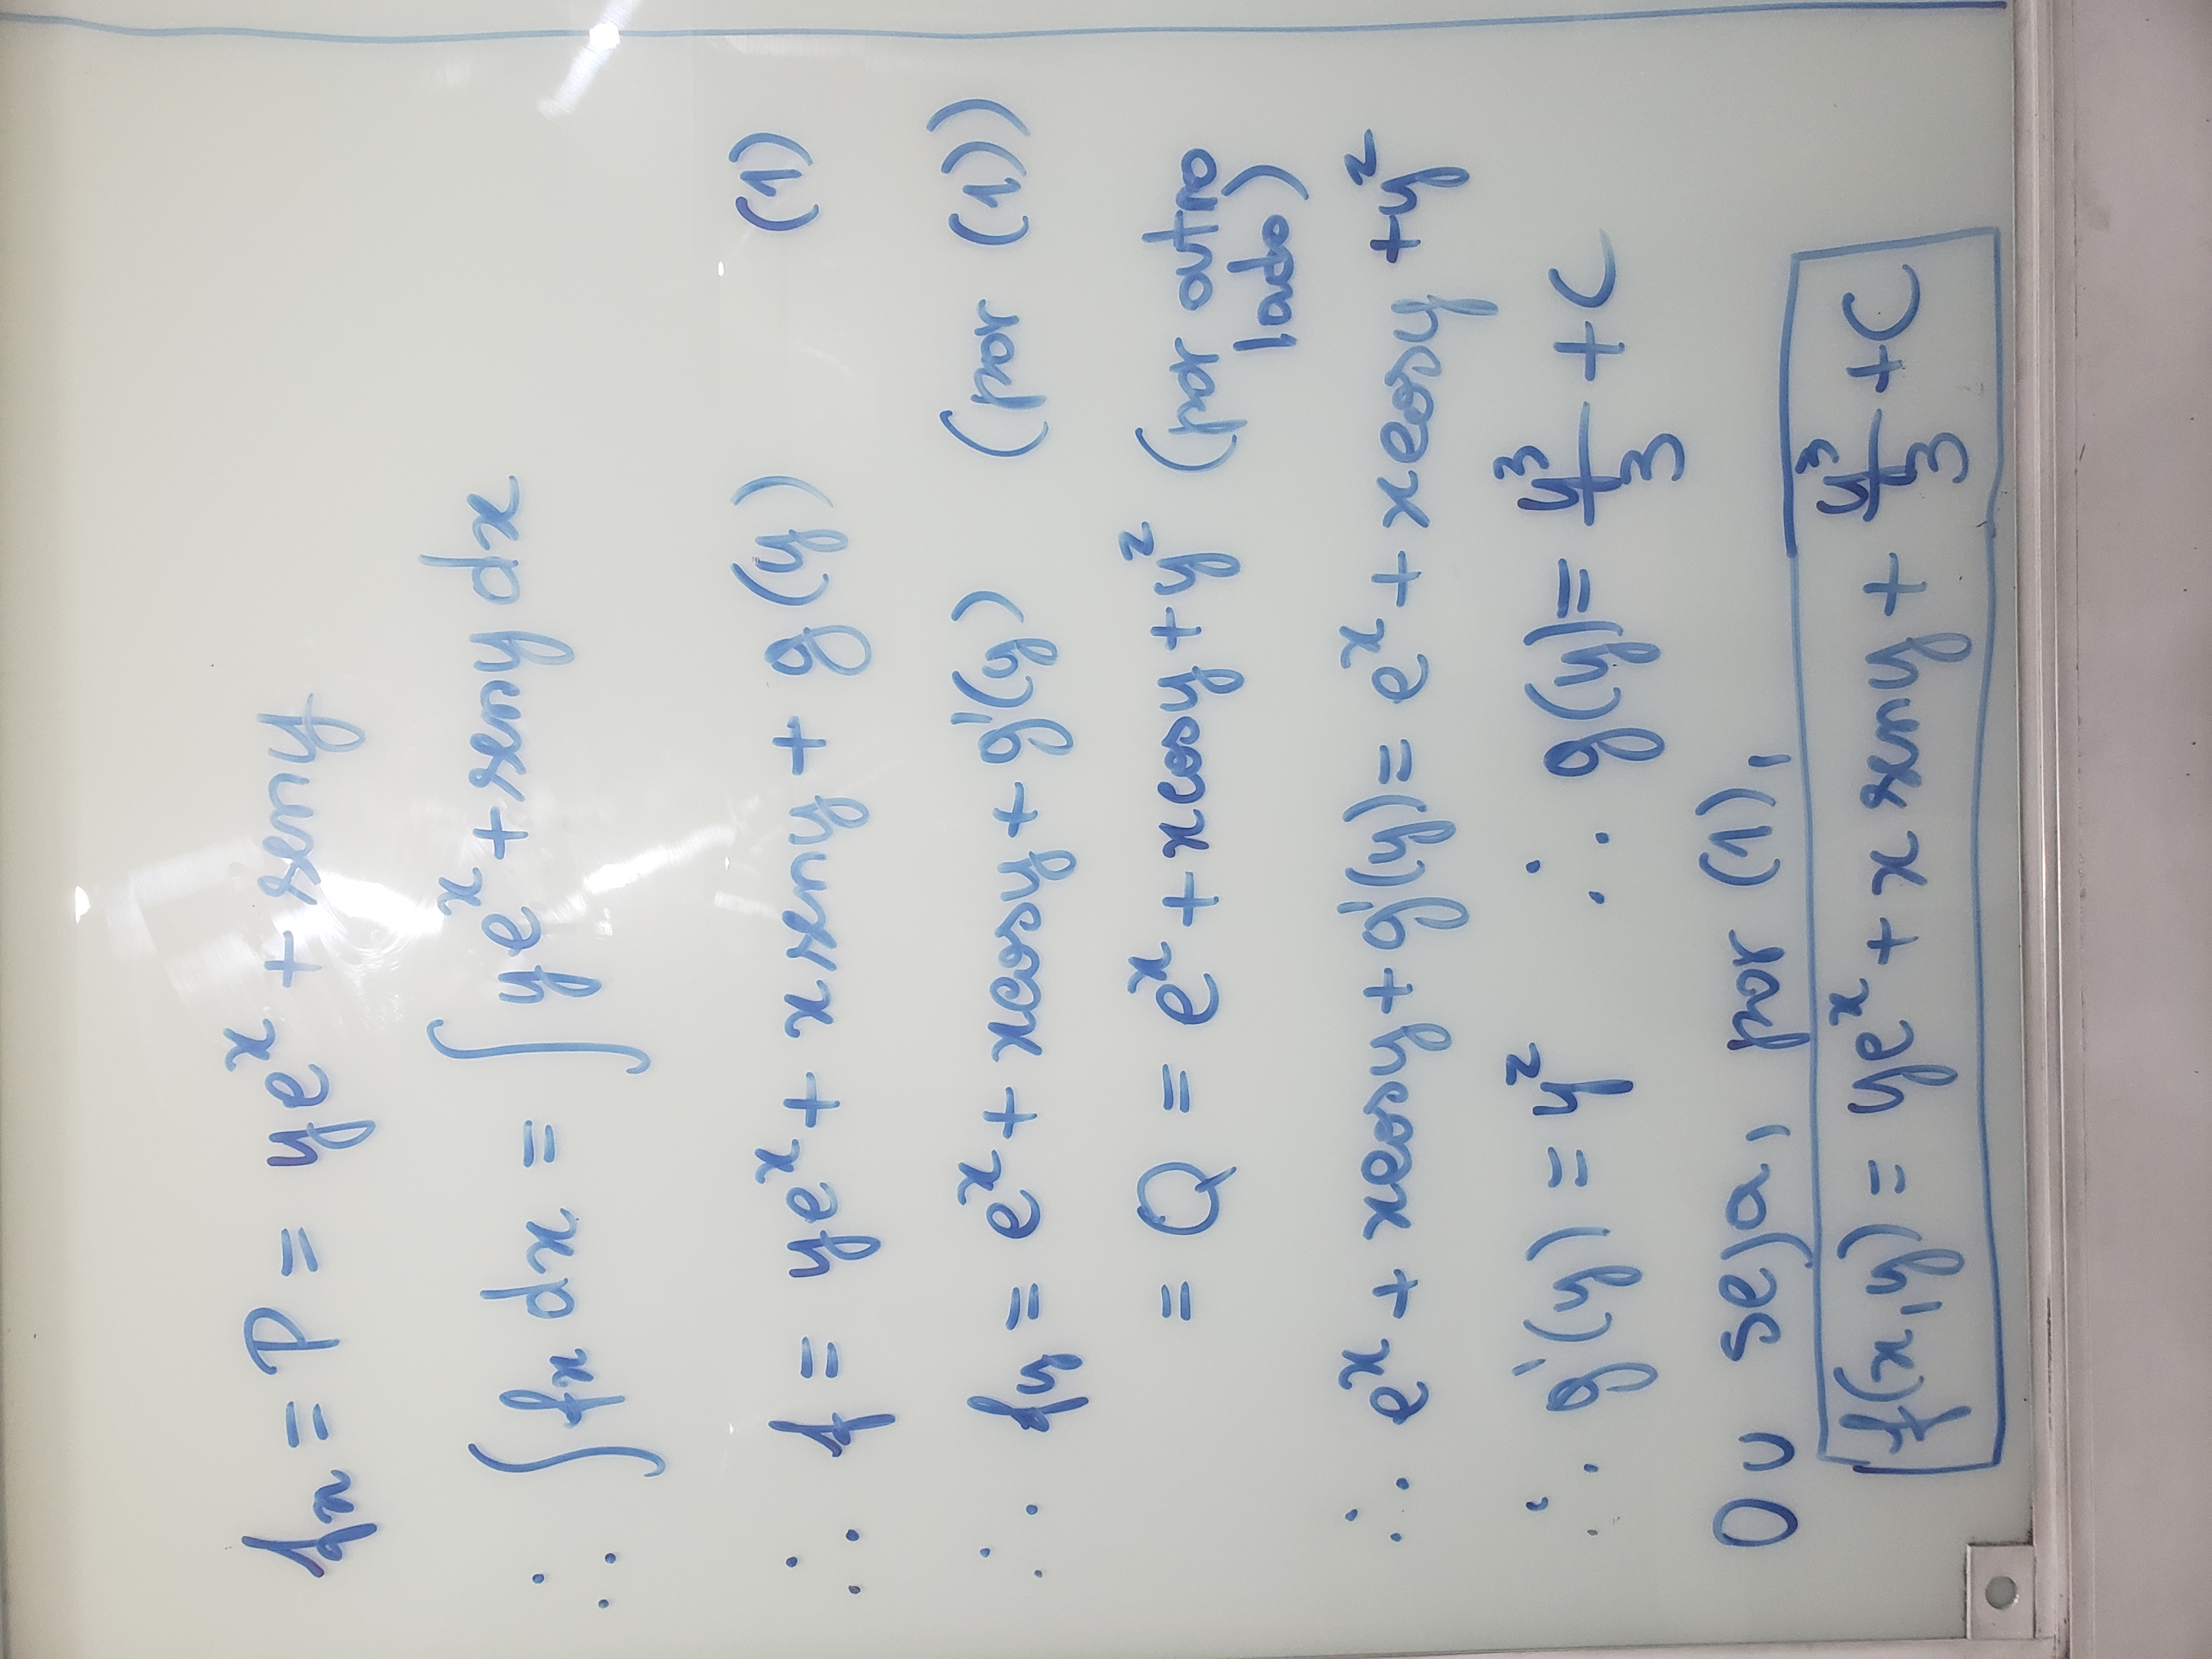 fx = P = yeˣ + seny
∴ ∫ fx dx = ∫ yeˣ + seny dx
∴ f = yeˣ + x seny + g(y) (1)
∴ fy = eˣ + xcosy + g'(y) (por (1))
= Q = eˣ + xcosy + y² (por outro
lado)
∴ eˣ + xcosy + g'(y) = eˣ + xcosy + y²
∴ g'(y) = y² ∴ g(y) = y³/3 + C
Ou seja, por (1),
f(x,y) = yeˣ + x seny + y³/3 + C